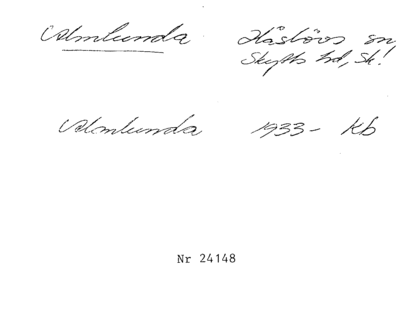 Almlunda Håslövs sn
Skytts hd, Sk!
Almlunda 1933- Kb
Nr 24148